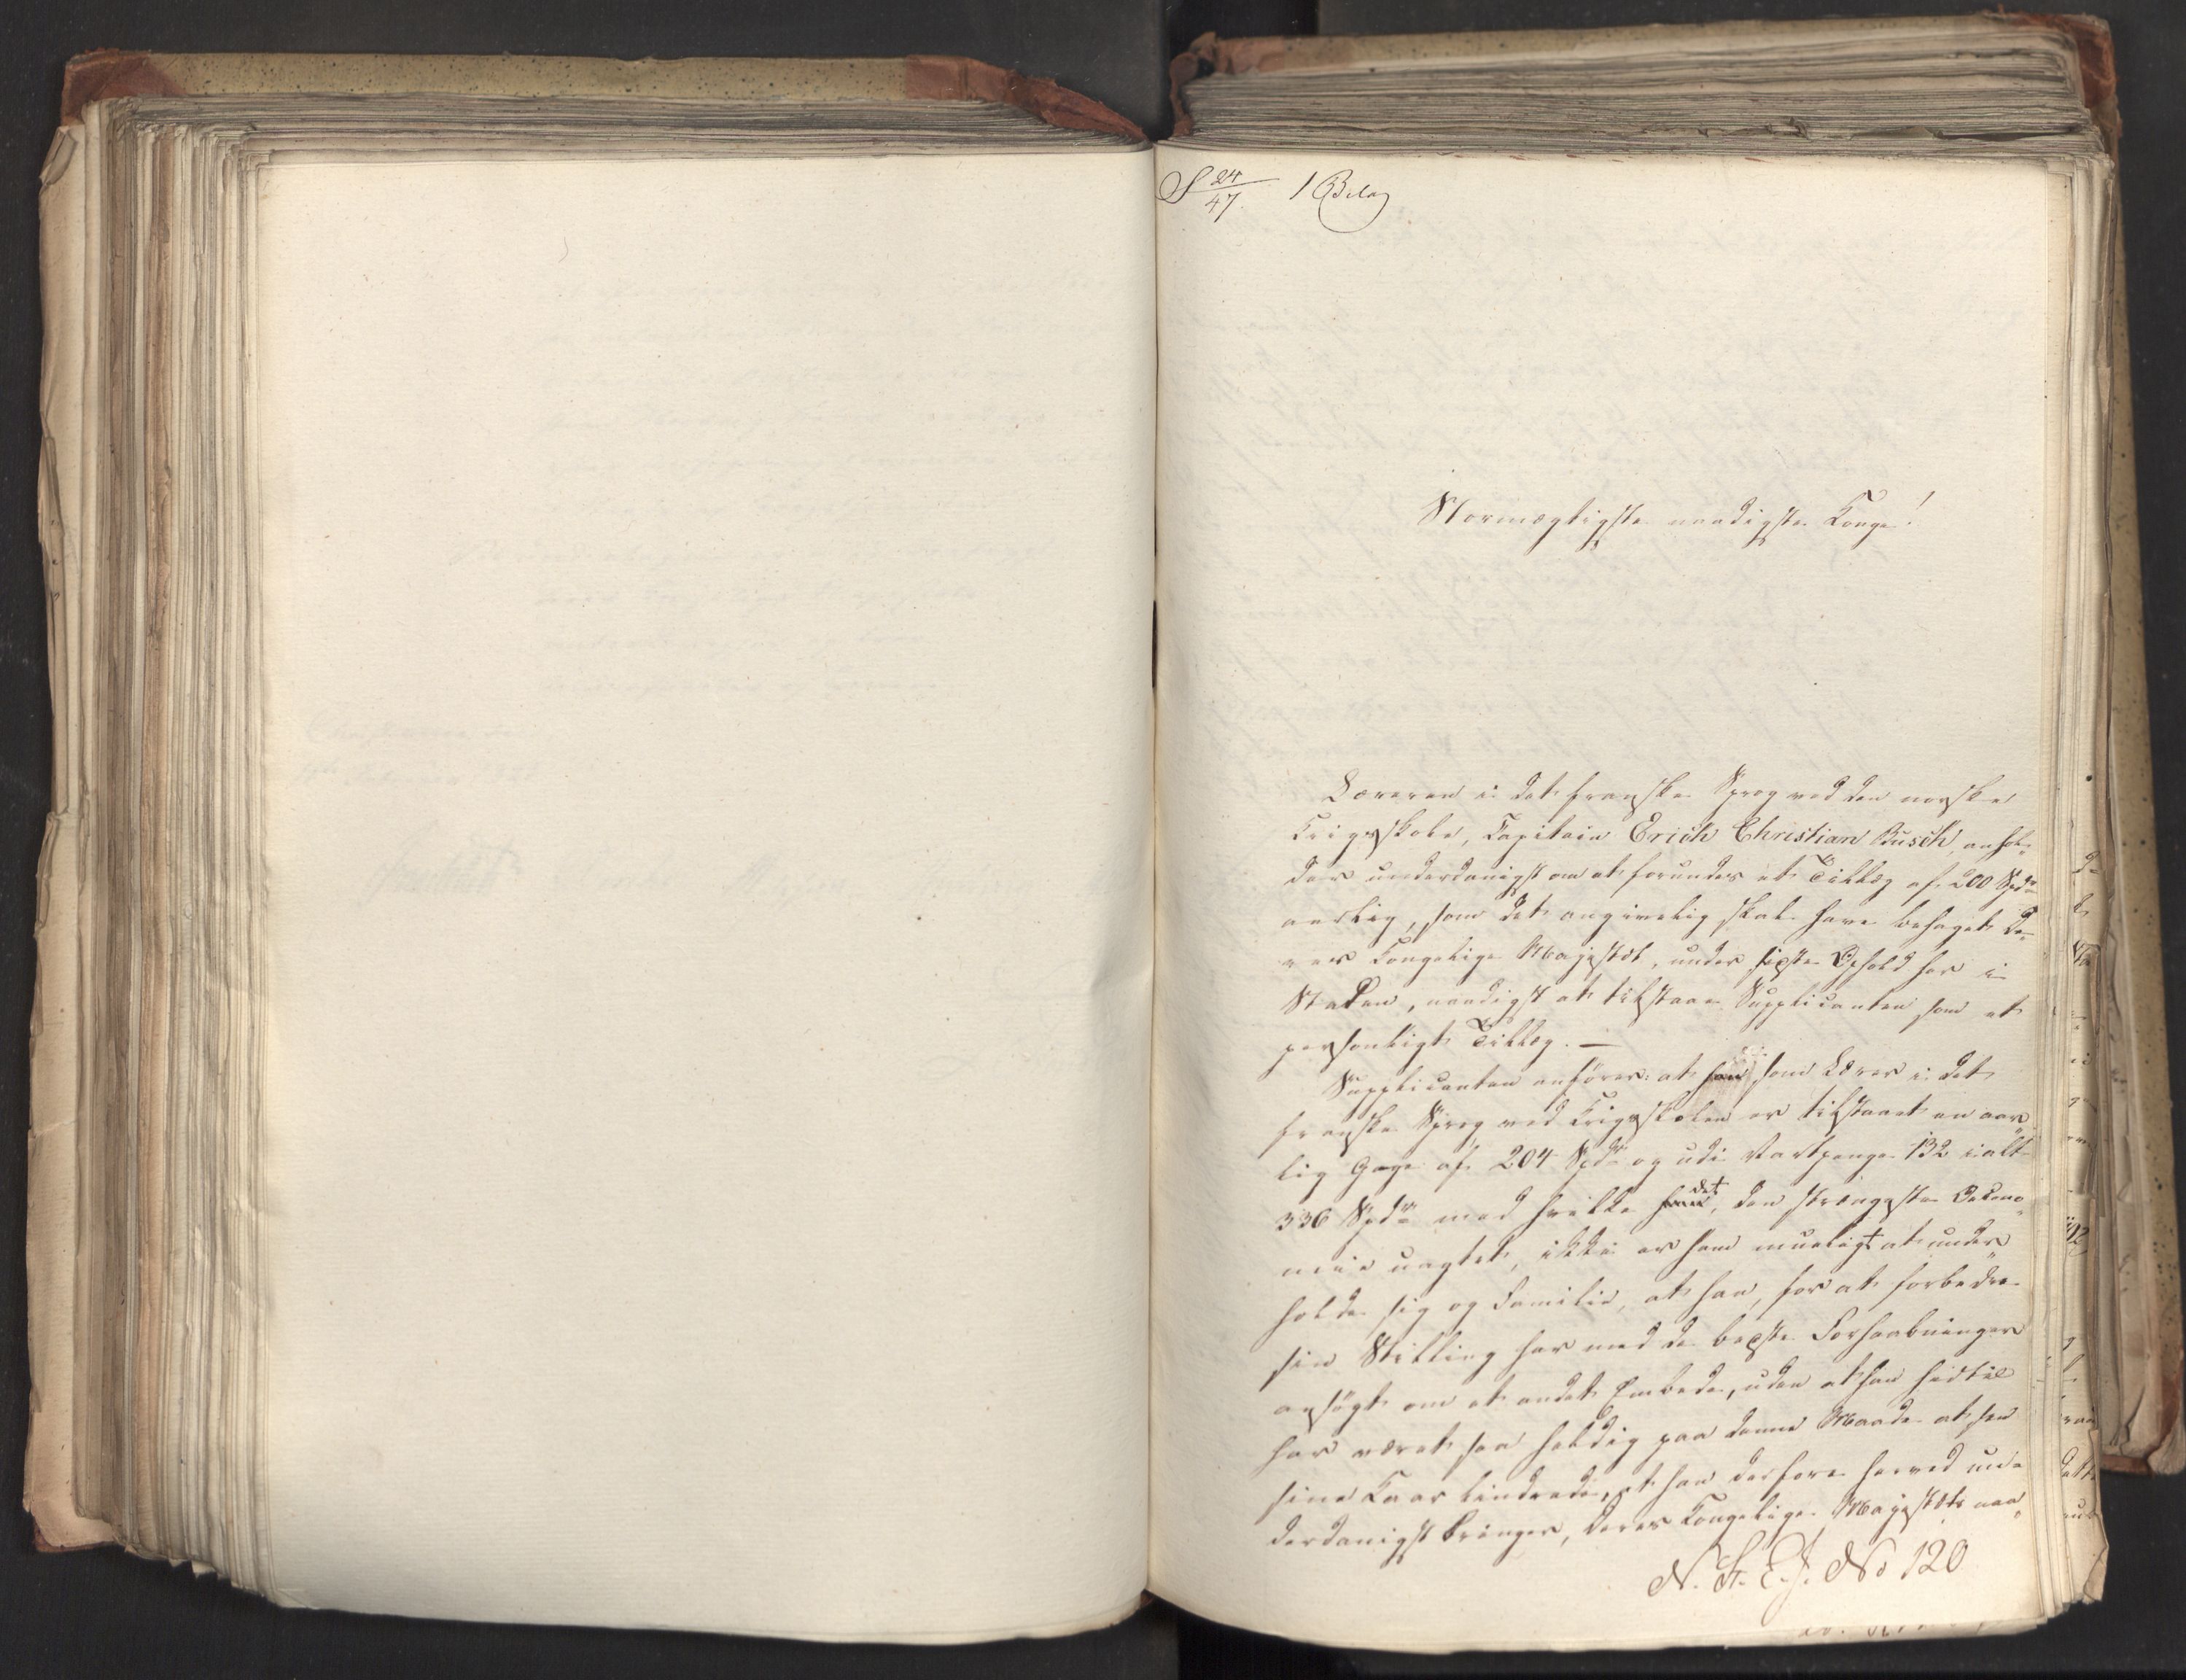 S 24/47. 1 Bilag
Stormægtigste naadigste Konge!
Læreren i det franske Sprog ved den norske
Krigsskole, Capitain Erich Christian Busch, anhol-
der underdanigst om at forundes et Tillæg af 200 Spdr
aarlig, som det angivelig skal have behaget De-
res Kongelige Majestæt, under sidste Ophold her i
Staden, naadigst at tilstaae Supplicanten som et
personligt Tillæg. —
Supplicanten anfører: at han som Lærer i det
franske Sprog ved Krigsskolen er tilstaaet en aar-
lig Gage af 204 Spdr og udi Vartpenge 132 ialt
336 Spdr med hvilke det, den strængeste Oekono-
mie uagtet, ikke er ham mueligt at under-
holde sig og Familie, at han, for at forbedre
sin Stilling har med de bedste Forhaabninger
ansögt om et andet Embede, uden at han hidtil
har været saa heldig paa denne Maade at see
sine Kaar lindrede, at han derfore herved un-
derdanigst bringer, Deres Kongelige Majestæts naa-
N. St. E. J. No 120